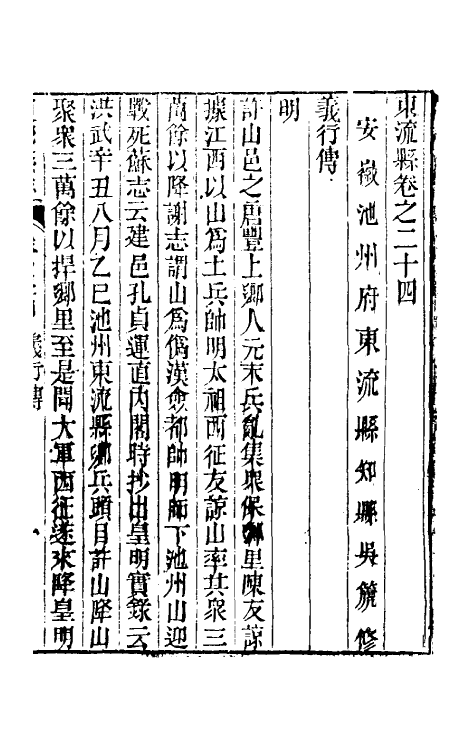 東流縣卷之二十四
安徽池州府東流縣知縣吳篪修
義行傳
明
許山邑之居豐上鄉人元末兵亂集眾保鄉里陳友諒
據江西以山為土兵帥明太祖西征友諒山率其眾三
萬餘以降謝志謂山為偽漢僉都帥明師下池州山迎
戰死蘇志云建邑孔貞運直內閣時抄出皇明實錄云
洪武辛丑八月乙巳池州東流縣鄉兵頭目許山降山
聚眾三萬餘以捍鄉里至是聞大軍西征遂來降皇明
義行傳